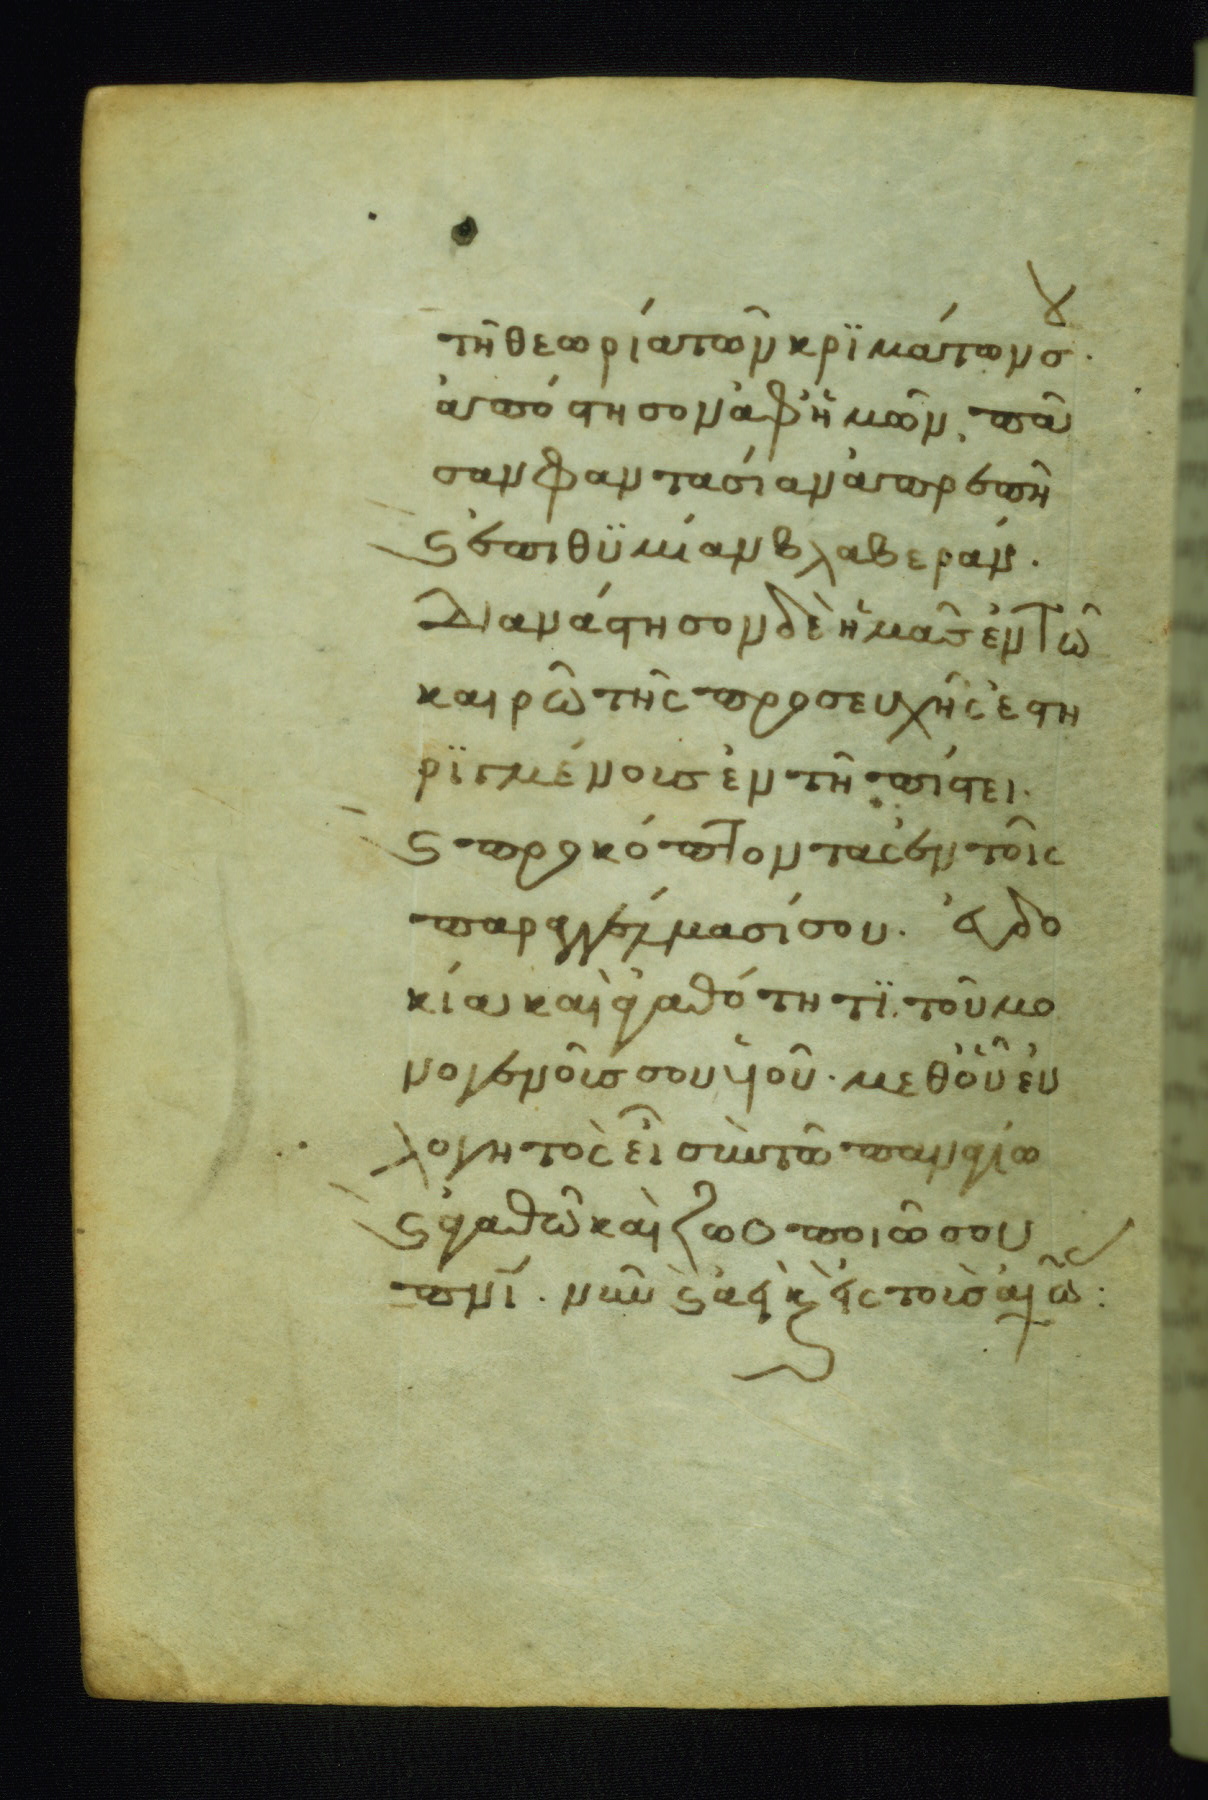 τῆ θεωρία τῶν κρϊμάτων σου·
ἀπόστησον ἀφ' ἡμῶν, πᾶ
σαν φαντασίαν ἀπρεπῆ
ϛ ἐπιθϋμίαν βλαβεράν.
Διανάστησον δὲ ἡμᾶς ἐν τῶ
καιρῶ τῆς προσευχῆς ἐστη
ρϊγμένους ἐν τῆ πίστει.
ϛ προκόπτοντας ἐν τοῖς
παραγγέλμασί σου. εὐδο
κία καὶ ἀγαθότητϊ. τοῦ μο
νογενοῦς σου υἱοῦ. μεθ' οὗ εὐ
λογητὸς εἶ σὺν τῶ παναγίω
ϛ ἀγαθῶ καὶ ζωοποιῶ σου
πνι. νῦν ϛ ἀεὶ κ εἰς τοὺς αἰῶ: